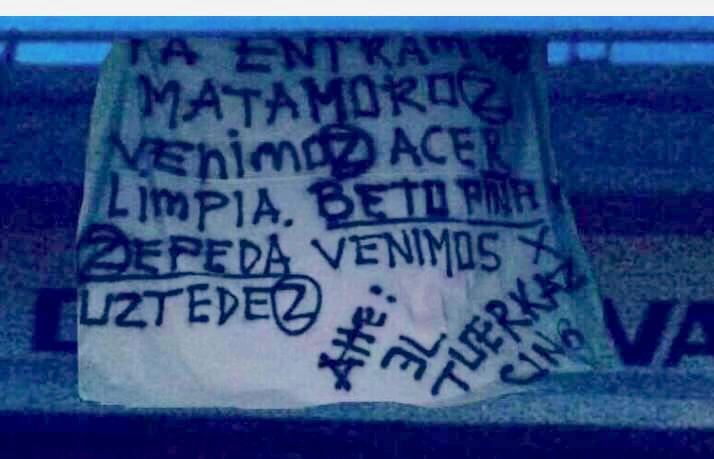 YA ENTRAMOZ
MATAMOROZ
VENIMOZ ACER
LIMPIA. BETO PIÑA
ZEPEDA VENIMOS X
UZTEDEZ
ATTE:
EL
TUERKAZ
VA